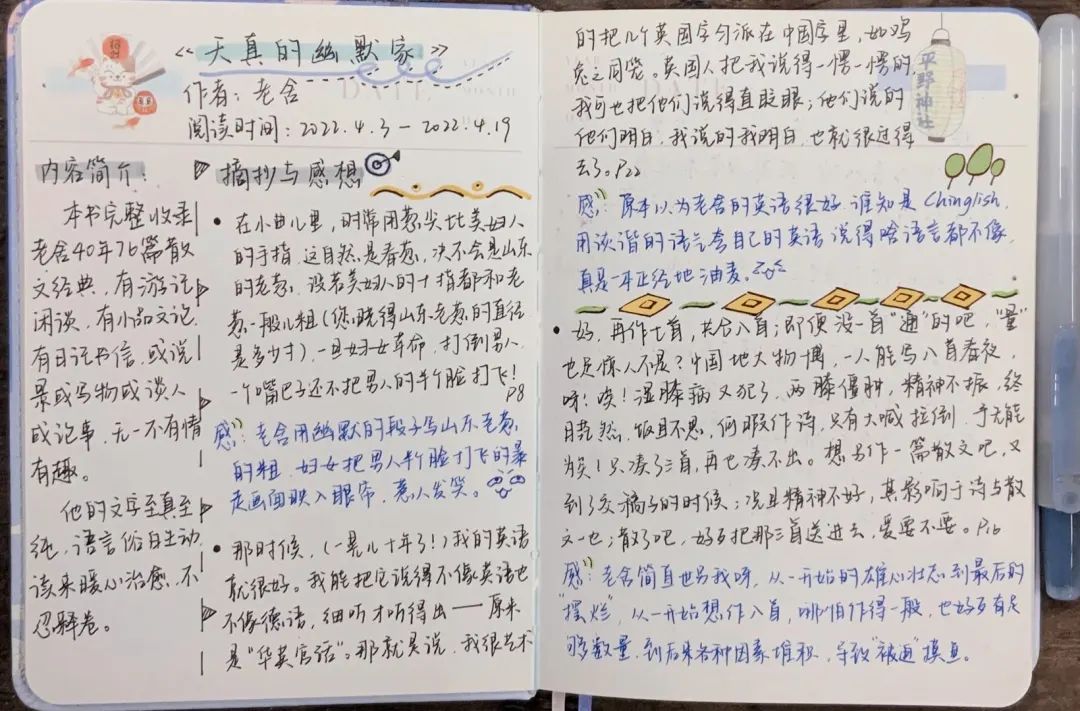 《天真的幽默家》
作者：老舍
阅读时间：2022.4.3-2022.4.19
内容简介：
本书完整收录
老舍40年76篇散
文经典，有游记
闲谈，有小品文论，
有日记书信，或说
景或写物或谈人
或论事，无一不有情
有趣。
他的文字至真至
纯，语言俗白生动，
读来暖心治愈，不
忍释卷。
摘抄与感想
• 在小曲儿里，时常用葱尖比美妇人
的手指，这自然是春葱，决不会是山东
的老葱，设若美妇人的十指都和老
葱一般儿粗（您晓得山东老葱的直径
是多少寸），一旦妇女革命，打倒男人，
一个嘴巴子还不把男人的半个脸打飞！
P8
感：老舍用幽默的段子写山东老葱
的粗，妇女把男人半个脸打飞的暴
走画面映入眼帘，惹人发笑。
• 那时候，（一晃几十年了！）我的英语
就很好。我能把它说得不像英语也
不像德语，细听才听得出——原来
是“华英官话”。那就是说，我很艺术
的把几个英国字匀派在中国字里，如鸡
兔之同笼。英国人把我说得一愣一愣的，
我可也把他们说得直眨眼；他们说的
他们明白，我说的我明白，也就很过得
去了。P22
平野神社
感：原本以为老舍的英语很好，谁知是Chinglish，
用诙谐的语气夸自己的英语说得啥语言都不像，
真是一本正经地油麦。
• 好，再作七首，共合八首；即便没一首“通”的吧，“量”
也足惊人不是？中国地大物博，一人能写八首春夜，
呀！唉！湿膝病又犯了，两膝僵肿，精神不振，终
日茫然，饭且不思，何暇作诗，只有大喊拉倒，予无能
为矣！只凑了三首，再也凑不出。想另作一篇散文吧，又
到了交稿子的时候；况且精神不好，其影响于诗与散
文一也；散了吧，好歹把那三首送进去，爱要不要。P16
感：老舍简直也另我呀，从一开始的雄心壮志到最后的
“摆烂”，从一开始想作八首，哪怕作得一般，也好歹有足
够数量，到后来各种因素堆积，导致“被迫”摸鱼。